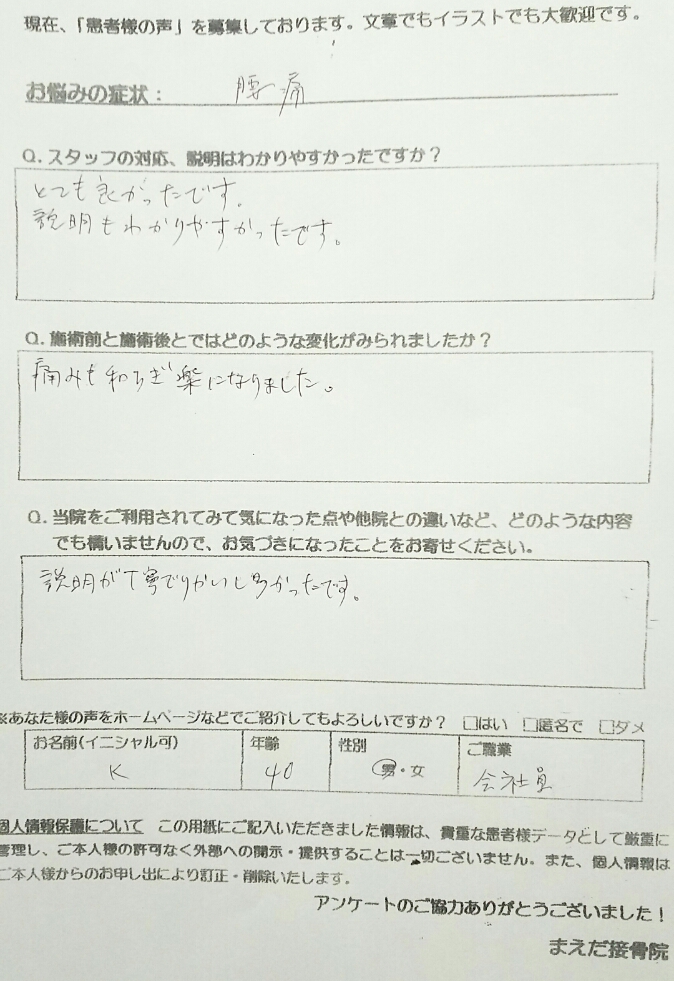 現在、「患者様の声」を募集しております。文章でもイラストでも大歓迎です。
お悩みの症状： 腰痛
Q．スタッフの対応、説明はわかりやすかったですか？
とても良かったです。
説明もわかりやすかったです。
Q．施術前と施術後とではどのような変化がみられましたか？
痛みも和らぎ楽になりました。
Q．当院をご利用されてみて気になった点や他院との違いなど、どのような内容
でも構いませんので、お気づきになったことをお寄せください。
説明が丁寧でりかいし多かったです。
※あなた様の声をホームページなどでご紹介してもよろしいですか？ □はい □匿名で □ダメ
お名前(イニシャル可) 年齢 性別 ご職業
K 40 男・女 会社員
個人情報保護について この用紙にご記入いただきました情報は、貴重な患者様データとして厳重に
管理し、ご本人様の許可なく外部への開示・提供することは一切ございません。また、個人情報は
ご本人様からのお申し出により訂正・削除いたします。
アンケートのご協力ありがとうございました！
まえだ接骨院